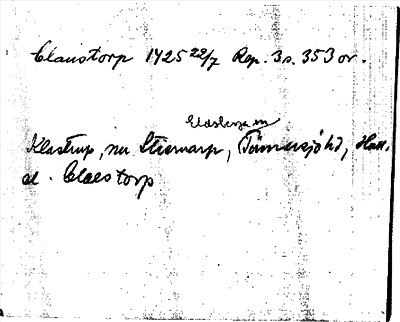 Claustorp 1425 22/7 Rep. 3 s. 353 or.
Eldsberga sn
Klastrup, nu Stiernarp, Tönnersjö hd, Hall.
al. Claestorp